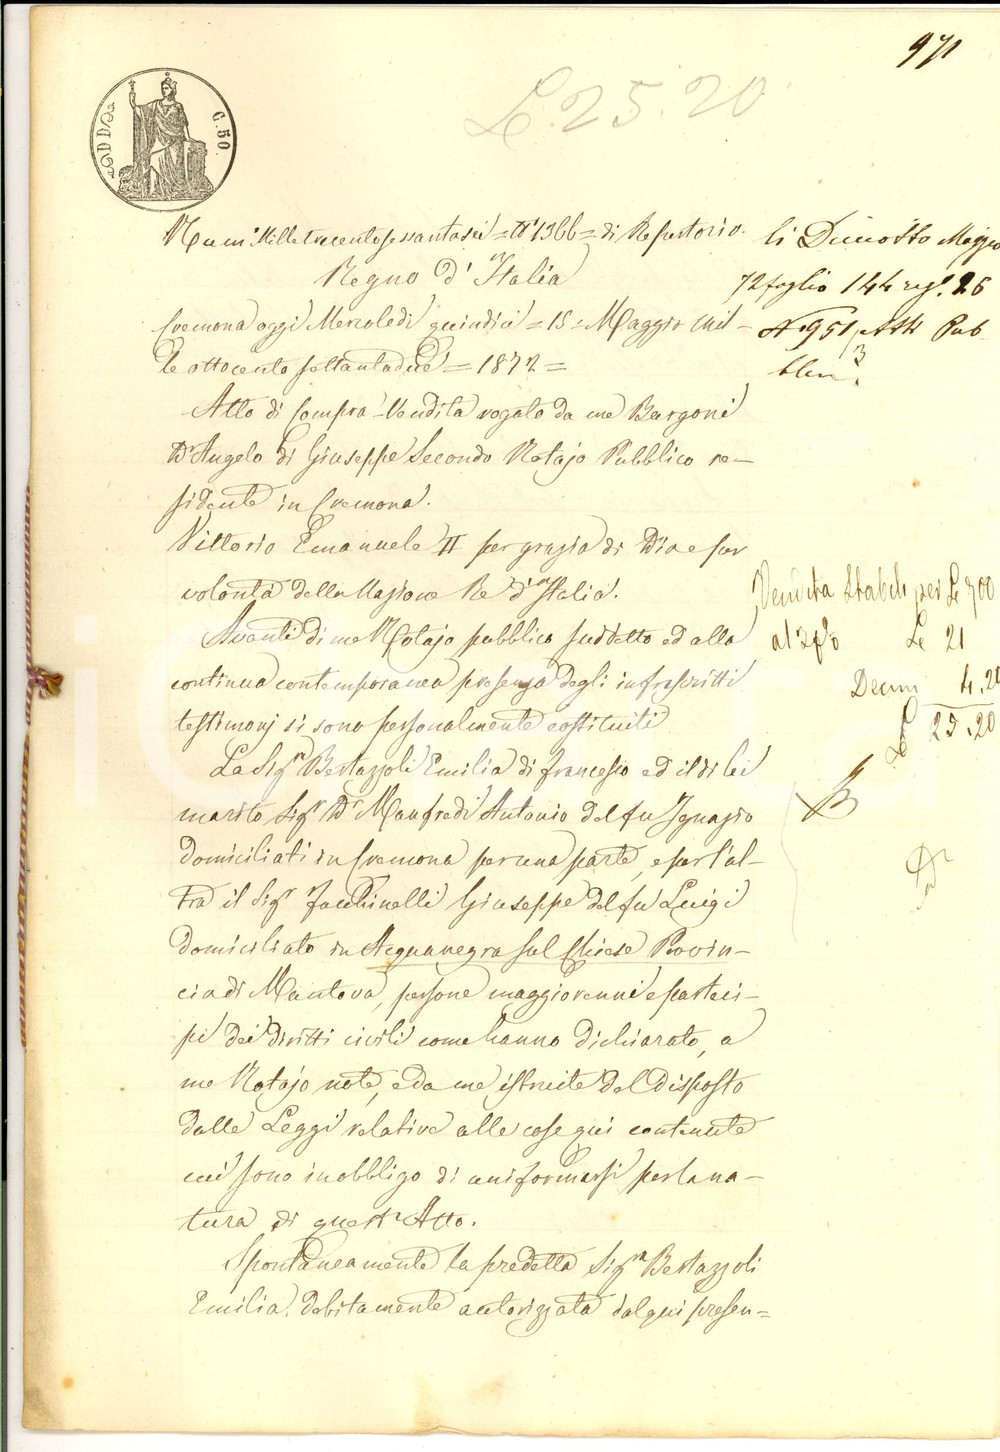 971
£. 25. 20
C. 50.
Num.° Milletrecentosessantasei = N° 1366 = di Repertorio.
Regno d'Italia
Cremona oggi Mercoledì quindici = 15 = Maggio Mil-
le ottocento settantadue = 1872 =
Atto di Compra-Vendita rogato da me Bargoni
Dr Angelo di Giuseppe Secondo Notajo Pubblico re-
sidente in Cremona.
Vittorio Emanuele II per grazia di Dio e per
volontà della Nazione Re d'Italia.
Avanti di me Notajo pubblico suddetto ed alla
continua contemporanea presenza degli infrascritti
testimonj si sono personalmente costituiti
La Sigra Bertazzoli Emilia di Francesco ed il di lei
marito Sigr Dr Manfredi Antonio del fu Ignazio
domiciliati in Cremona per una parte, e per l'al-
tra il Sigr Facchinelli Giuseppe del fu Luigi
domiciliato in Acquanegra sul Chiese Provin-
cia di Mantova, persone maggiorenni e parteci-
pi dei diritti civili come hanno dichiarato, a
me Notajo note, e da me istruite del disposto
dalle Leggi relative alle cose qui contenute
cui sono in obbligo di uniformarsi per la na-
tura di quest'Atto.
Spontaneamente la predetta Sigra Bertazzoli
Emilia, debitamente autorizzata dal qui presen=
li Diciotto Maggio
72 foglio 144 reg. 26
N. 951 Atti Pub-
blici
Vendita Stabili per £ 700
al 3 % £ 21
Decimi 4.20
£ 25.20